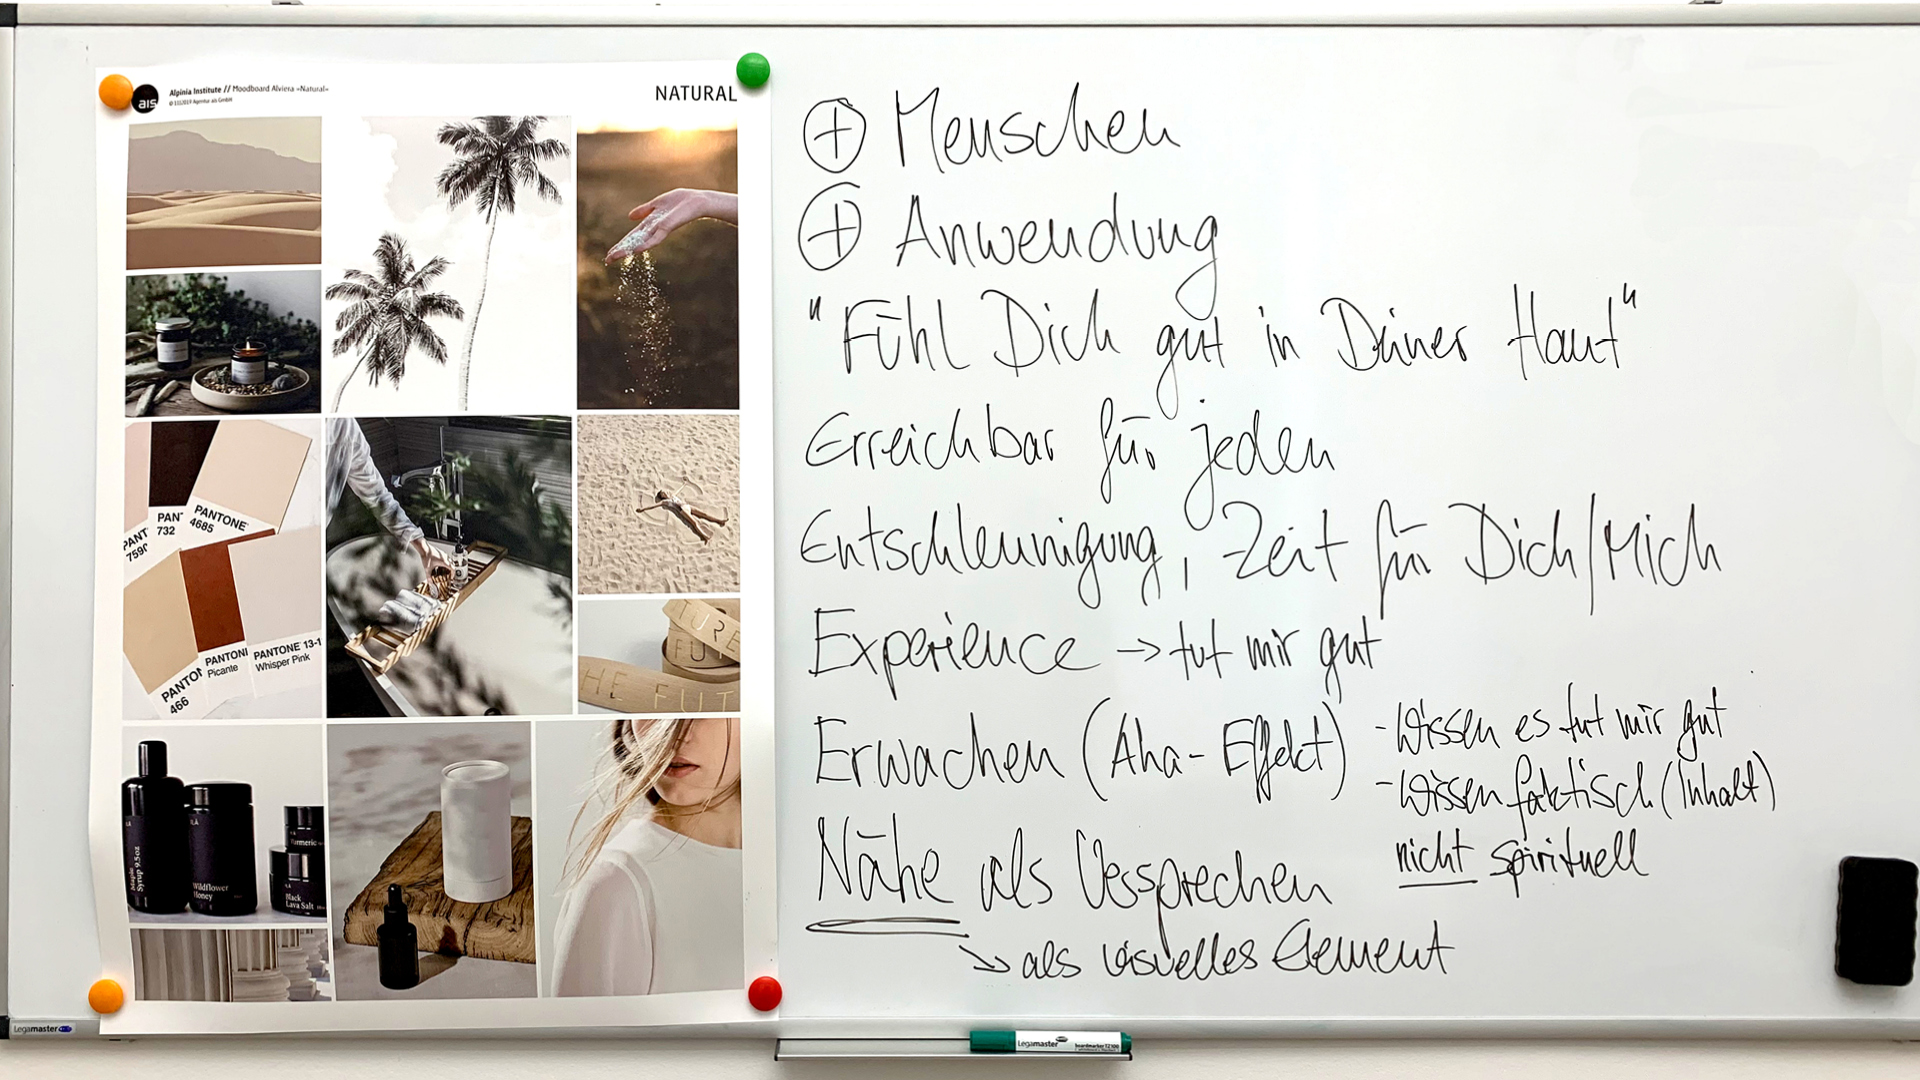 ais
Alpinia Institute // Moodboard Alviera »Natural«
© 11|2019 Agentur ais GmbH
NATURAL
PANT
759
PAN
732
PANTONE
4685
PANTO
466
PANTON
Picante
PANTONE 13-1
Whisper Pink
TURE
FUTU
HE FUT
Maple
Syrup 9.5oz
Wildflower
Honey
Turmeric
Black
Lava Salt
⊕ Menschen
⊕ Anwendung
"Fühl Dich gut in Deiner Haut"
Erreichbar für jeden
Entschleunigung, Zeit für Dich/Mich
Experience → tut mir gut
Erwachen (Aha-Effekt)
- Wissen es tut mir gut
- Wissen faktisch (Inhalt)
nicht spirituell
Nähe als Versprechen
↘ als visuelles Element
Legamaster
Legamaster
boardmarker TZ 100